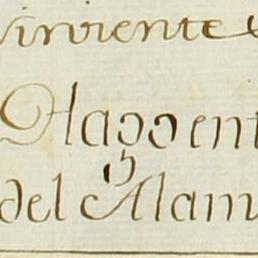 virviente
Hago ent
del Alam